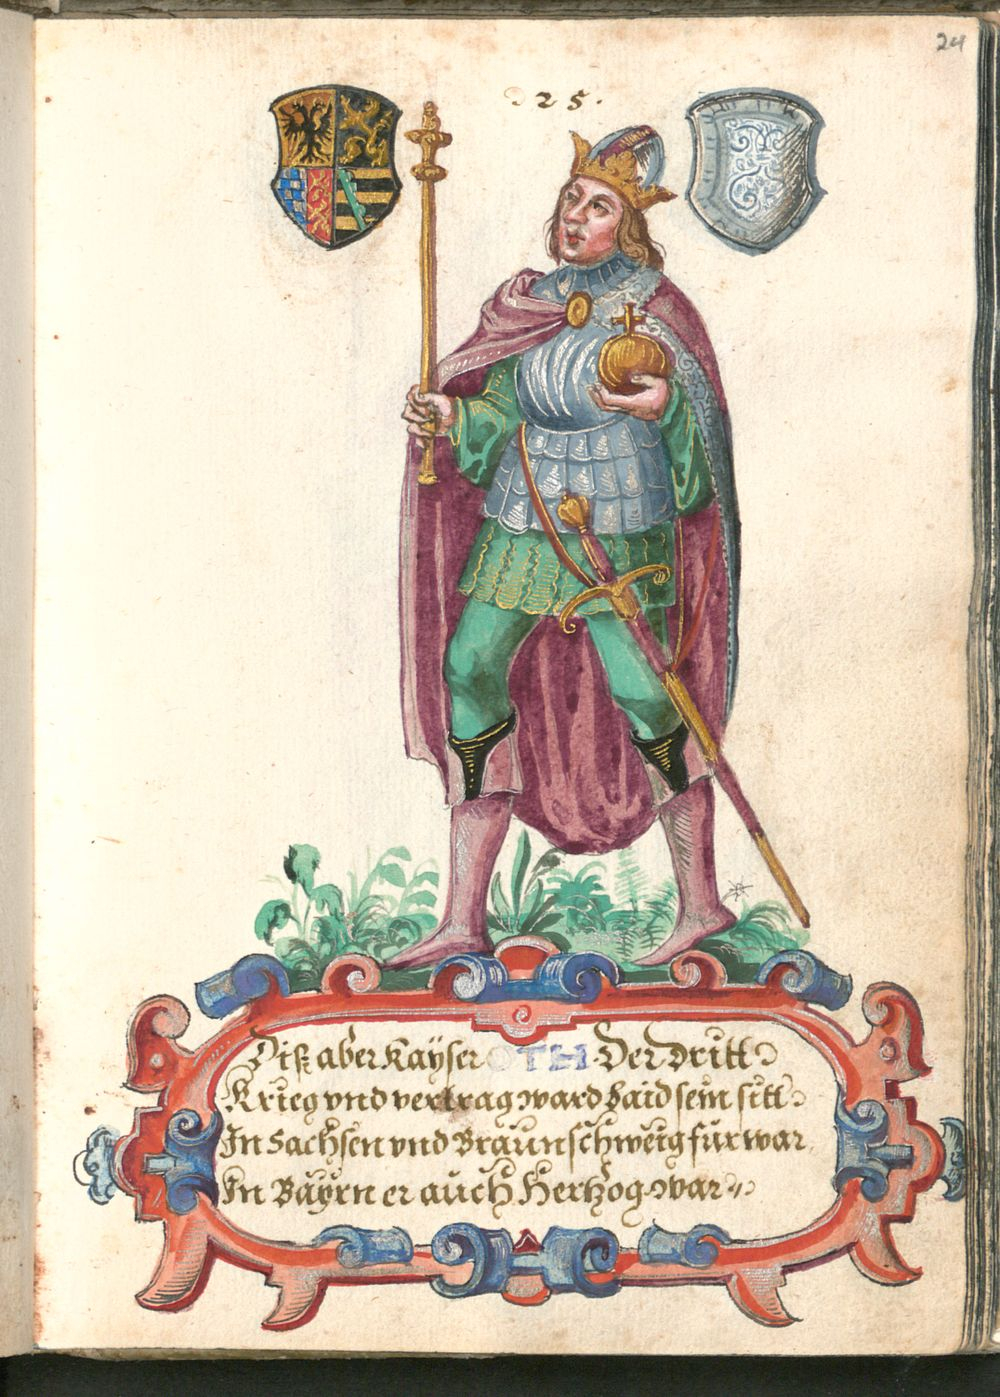 24
.25.
Diß aber Kaÿser OTH Der Dritt
Krieg vnd vertrag ward baid sein sitt
In Sachsen vnd Braunschweig fürwar
In Baÿrn er auch Hertzog war